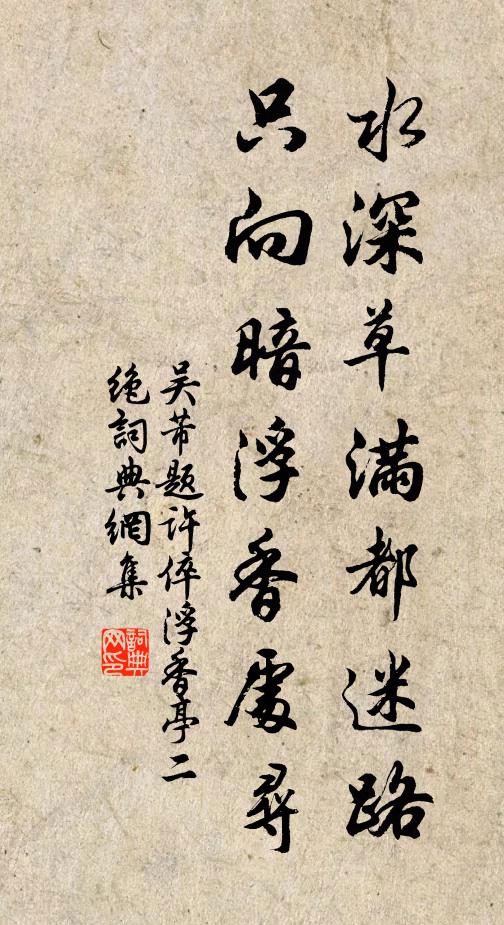 水深草满都迷路
只向暗浮香處尋
吴芾题许倅浮香亭二
绝詞典網集
詞典
网印